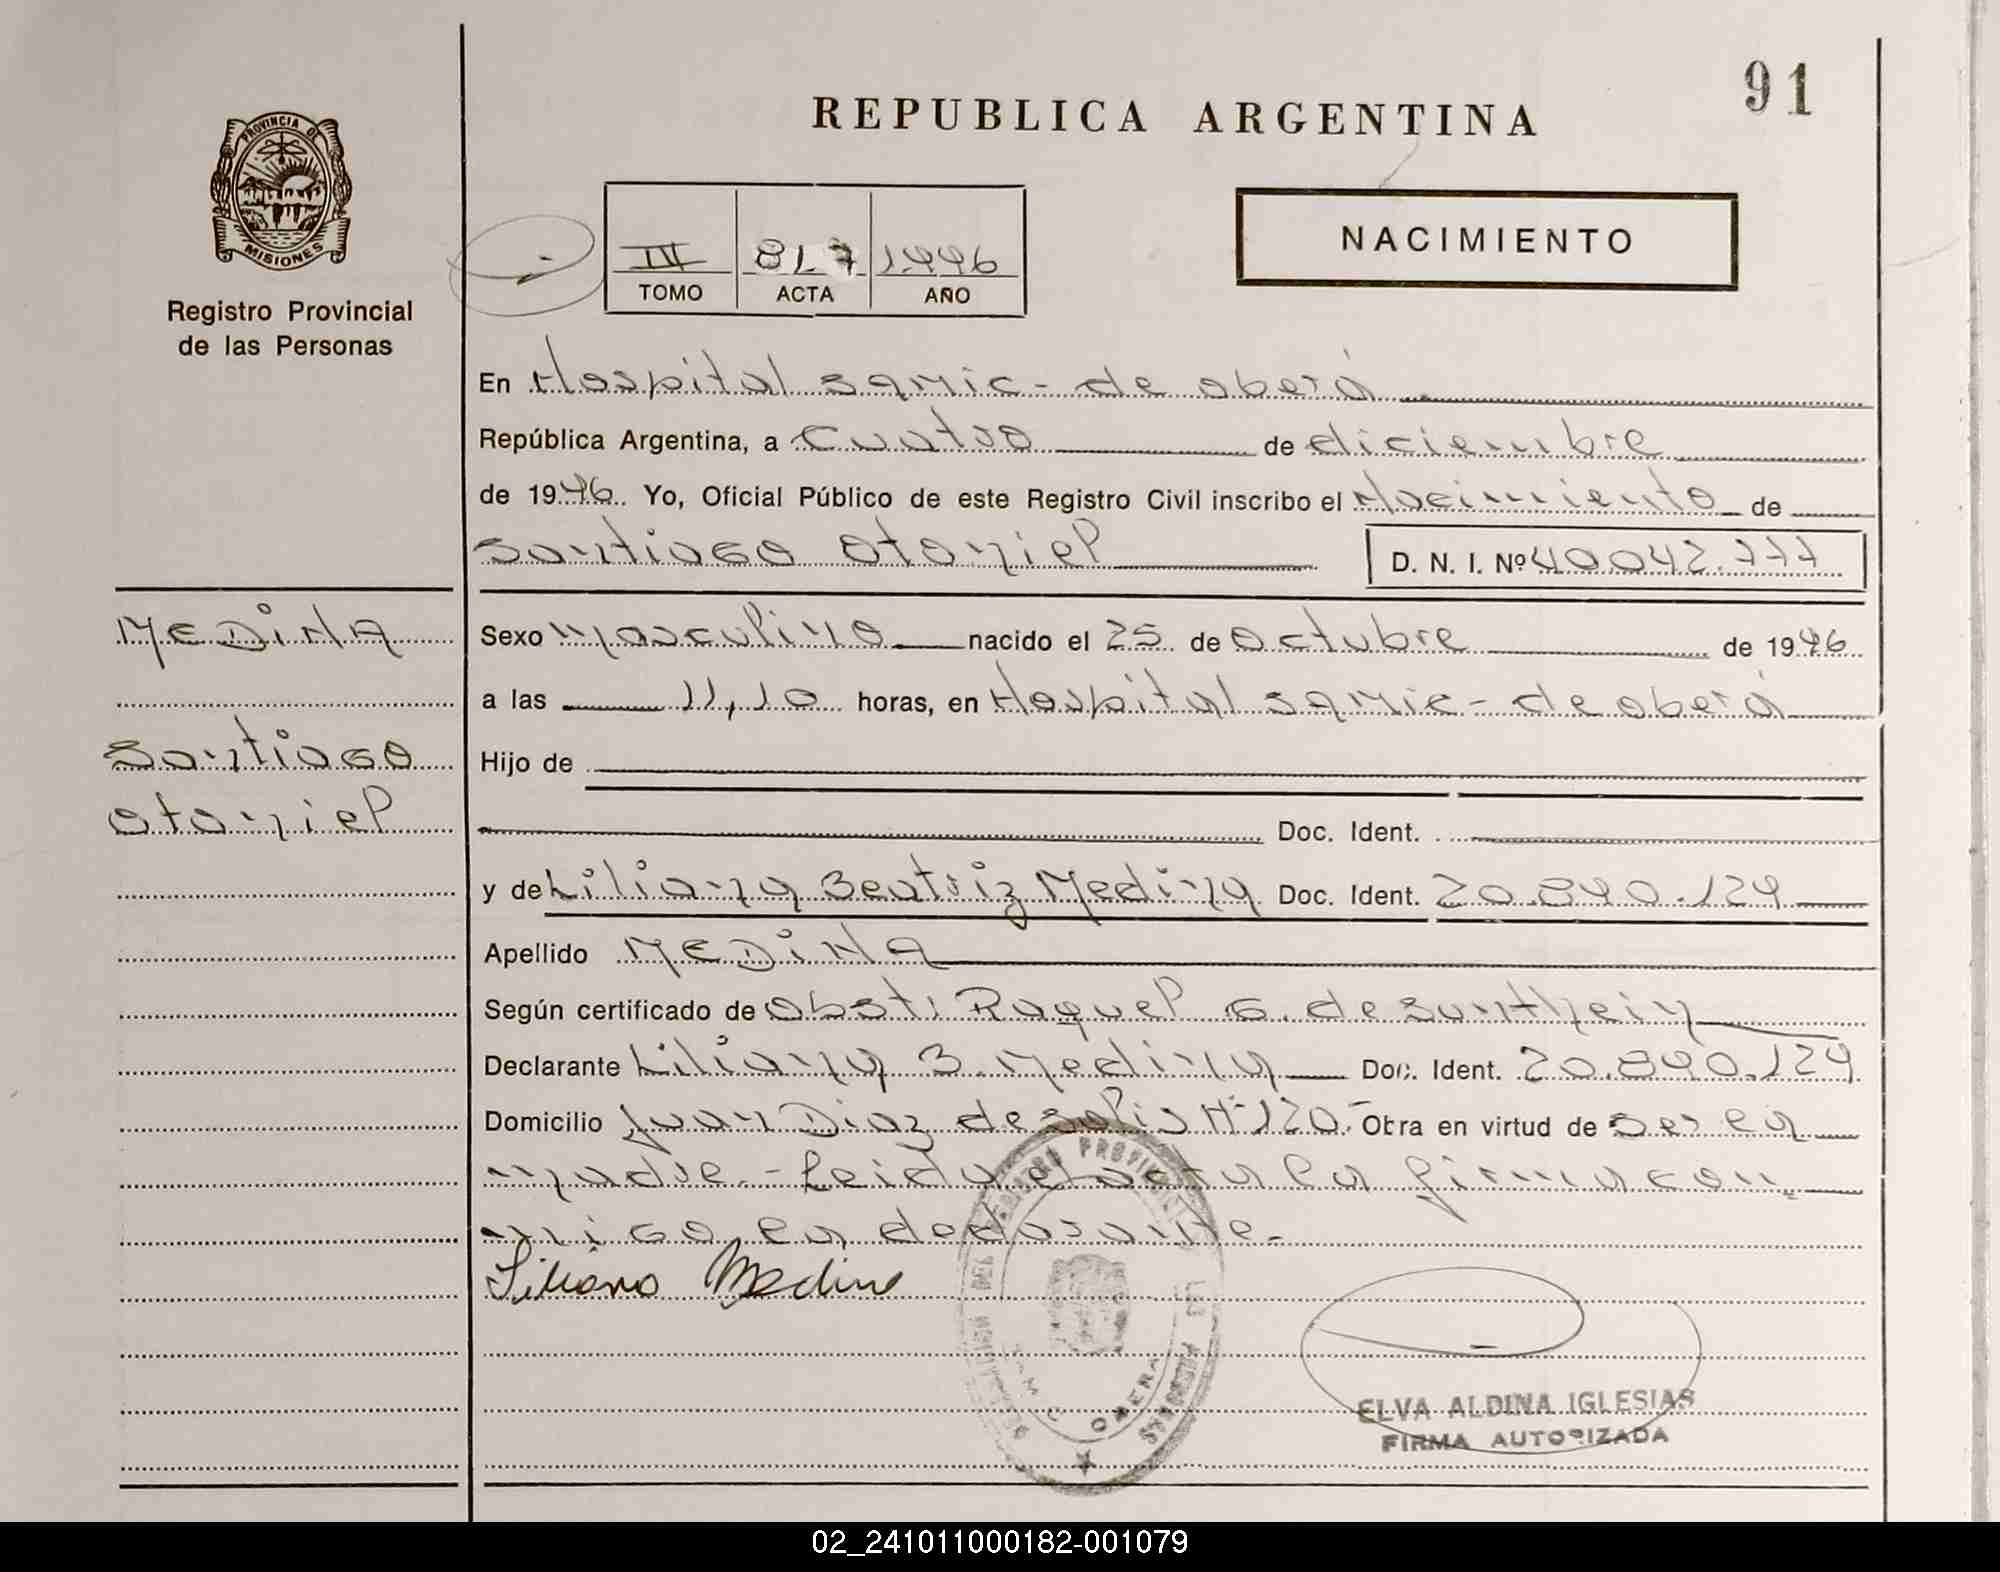 91
REPUBLICA ARGENTINA
PROVINCIA DE
MISIONES
Registro Provincial
de las Personas
III 817 1996
TOMO ACTA AÑO
NACIMIENTO
En Hospital Samic - de oberá
República Argentina, a cuatro de diciembre
de 1996. Yo, Oficial Público de este Registro Civil inscribo el Nacimiento de
Santiago otoniel D. N. I. Nº 40.042.777
MEDINA
Santiago
otoniel
Sexo masculino nacido el 25 de octubre de 1996
a las 11,10 horas, en Hospital Samic - de oberá
Hijo de
Doc. Ident.
y de Liliana Beatriz Medina Doc. Ident. 20.890.129
Apellido MEDINA
Según certificado de Obst. Raquel G. de Sunthein
Declarante Liliana B. Medina Doc. Ident. 20.890.129
Domicilio Juan Diaz de Solis Nº 120.- Obra en virtud de Ser la
madre.- Leida el acta la firma con
migo la declarante.-
Liliana Medina
REGISTRO PROVINCIAL
LAS PERSONAS
SAMIC OBERA
ELVA ALDINA IGLESIAS
FIRMA AUTORIZADA
02_241011000182-001079